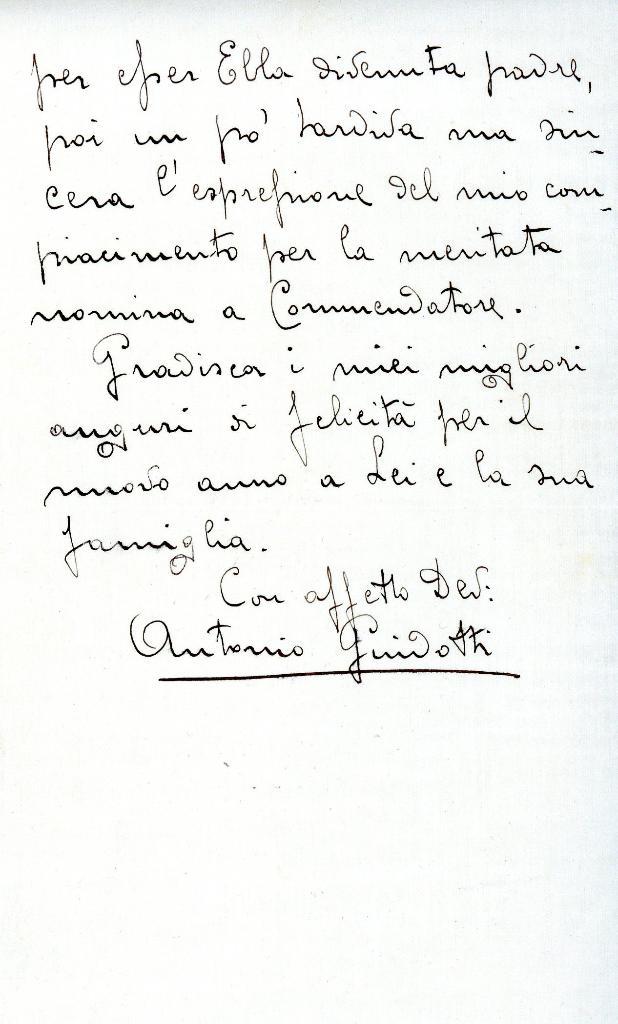 per esser Ella divenuta padre,
poi un pò tardiva ma sin-
cera l'espressione del mio com-
piacimento per la meritata
nomina a Commendatore.
Gradisca i miei migliori
auguri di felicità per il
nuovo anno a Lei e la sua
famiglia.
Con affetto Dev:
Antonio Guidotti